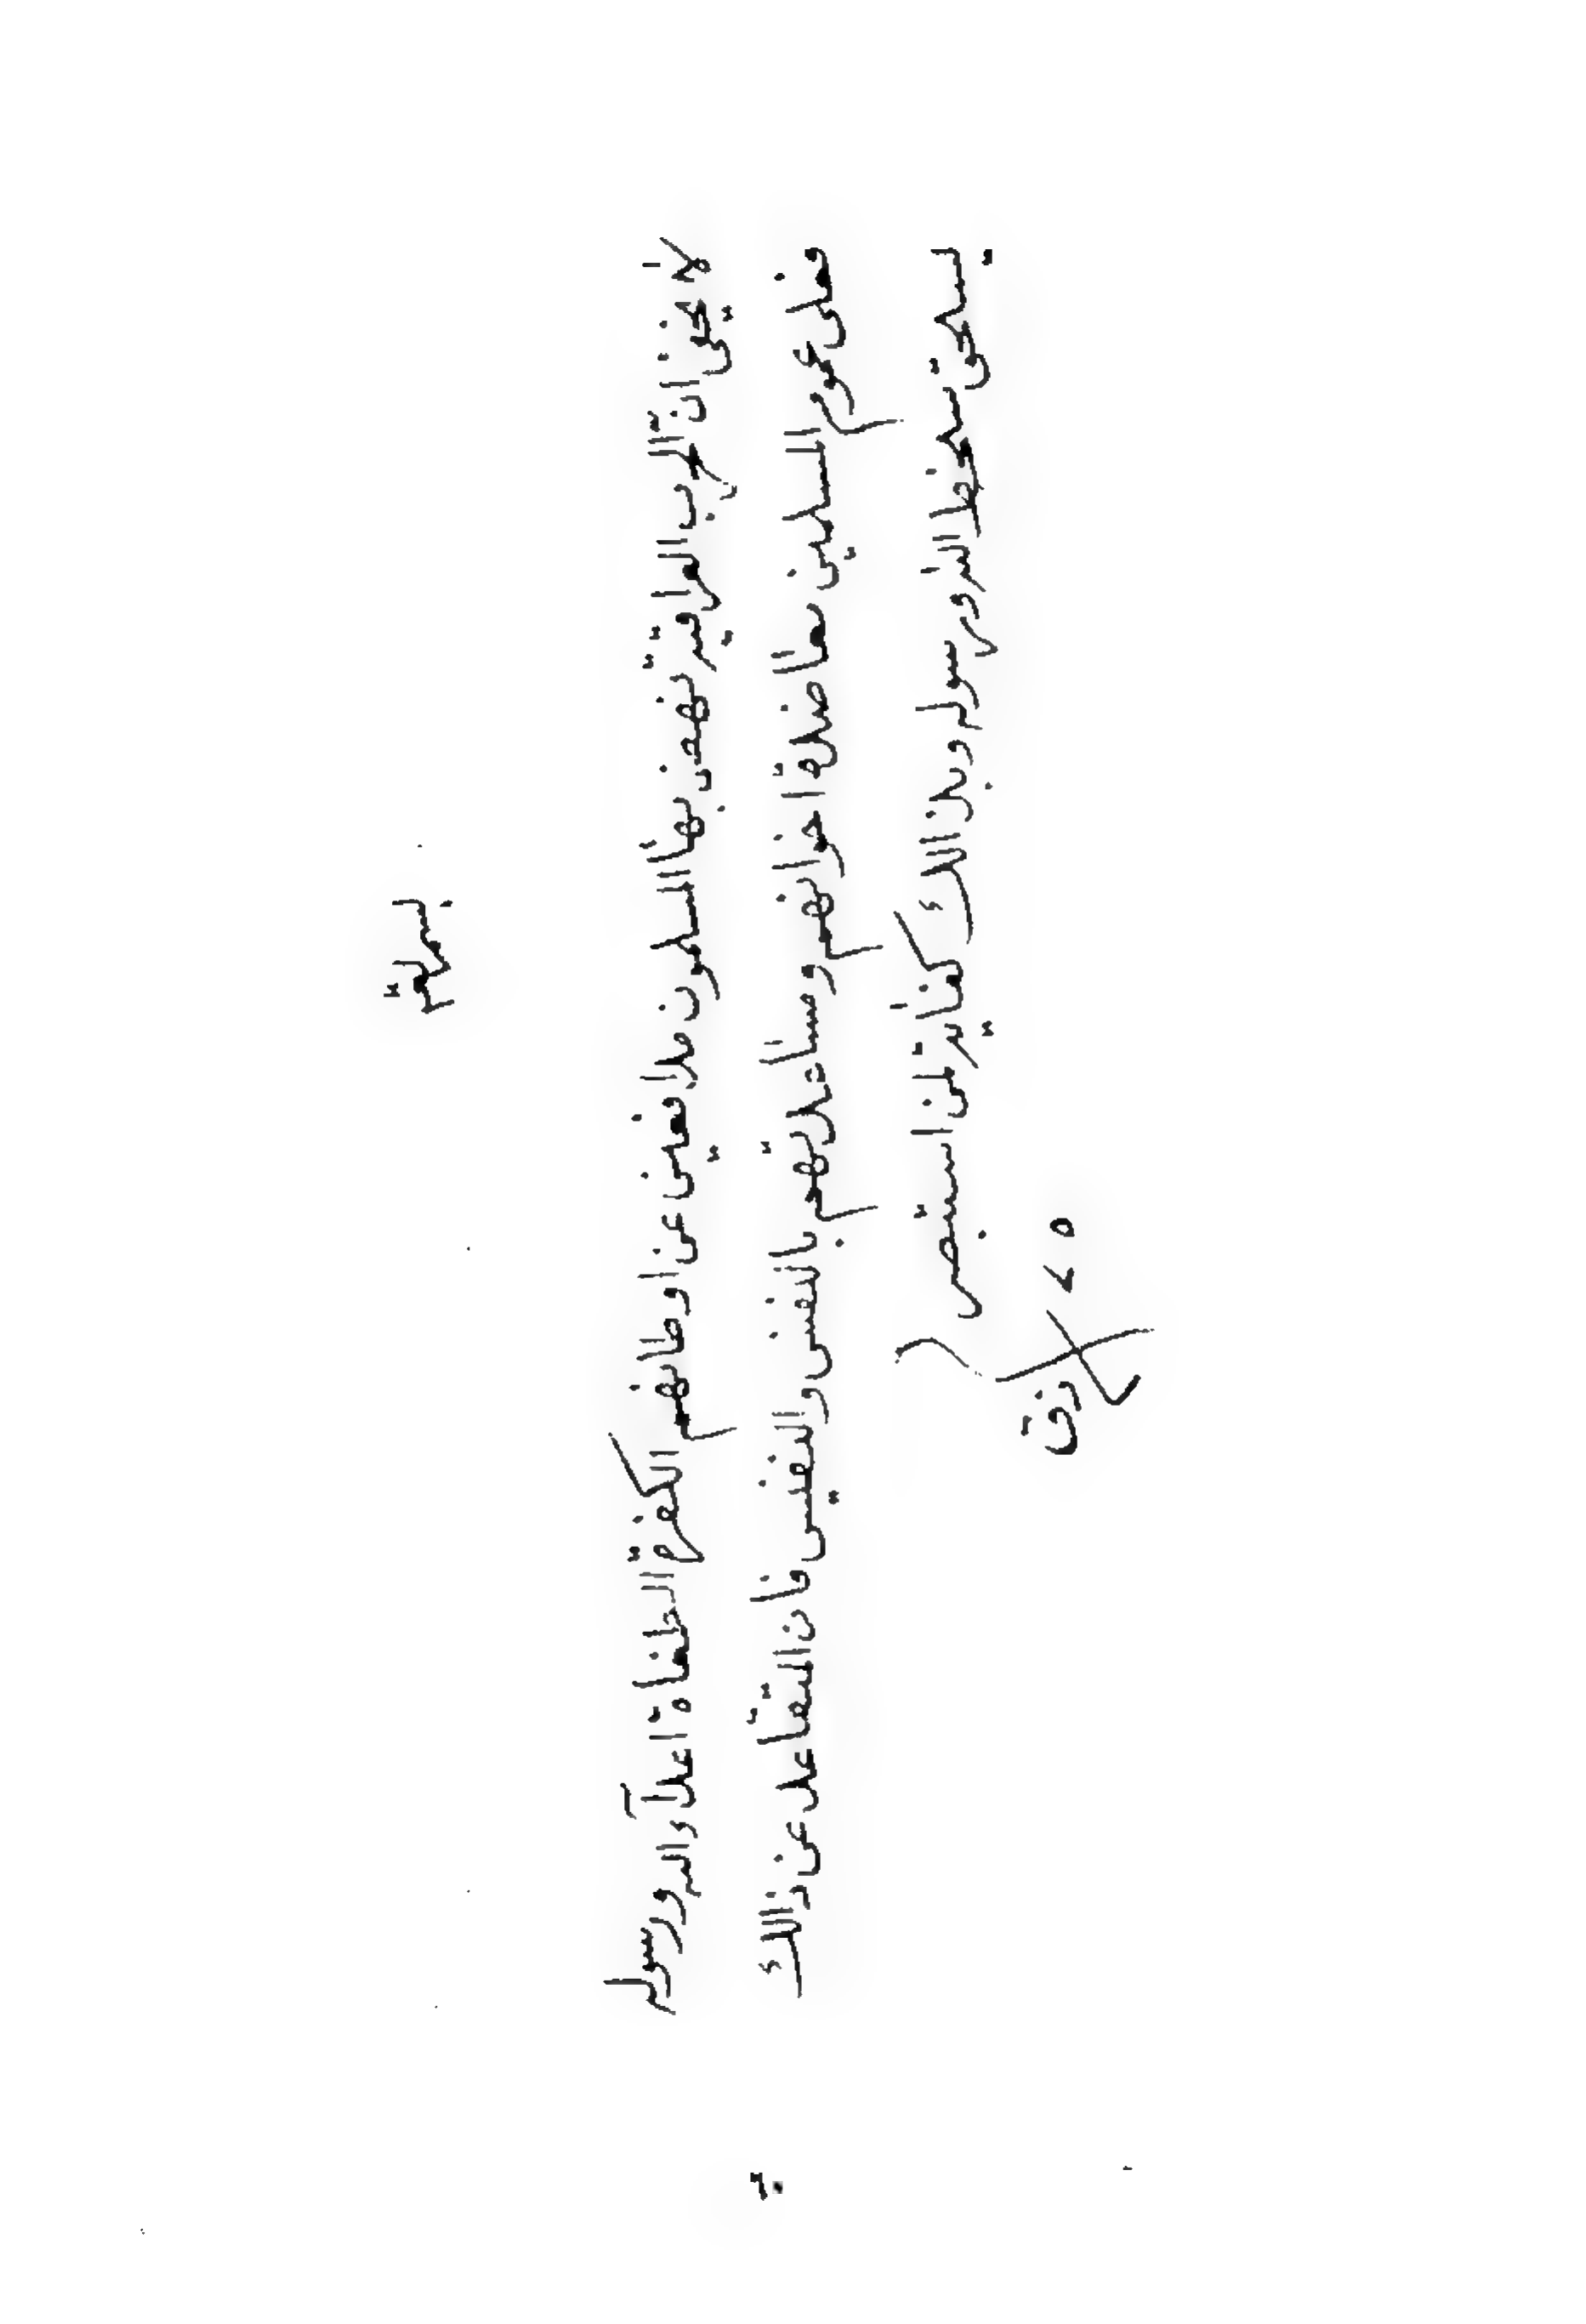 بسملة
لا يخفى ان الحرب العراقية نهض بها المسلمون مدافعين عن اوطانهم الكفرة الطغاة اعداء الله ورسوله
فعلى عموم المسلمين معاضدة اخوانهم ومساعدتهم بالنفس والنفيس فان التقاعد عن ذالك
يستحق سخط الله ورسوله وبذالك كفاية لمن استبصر
٦٠